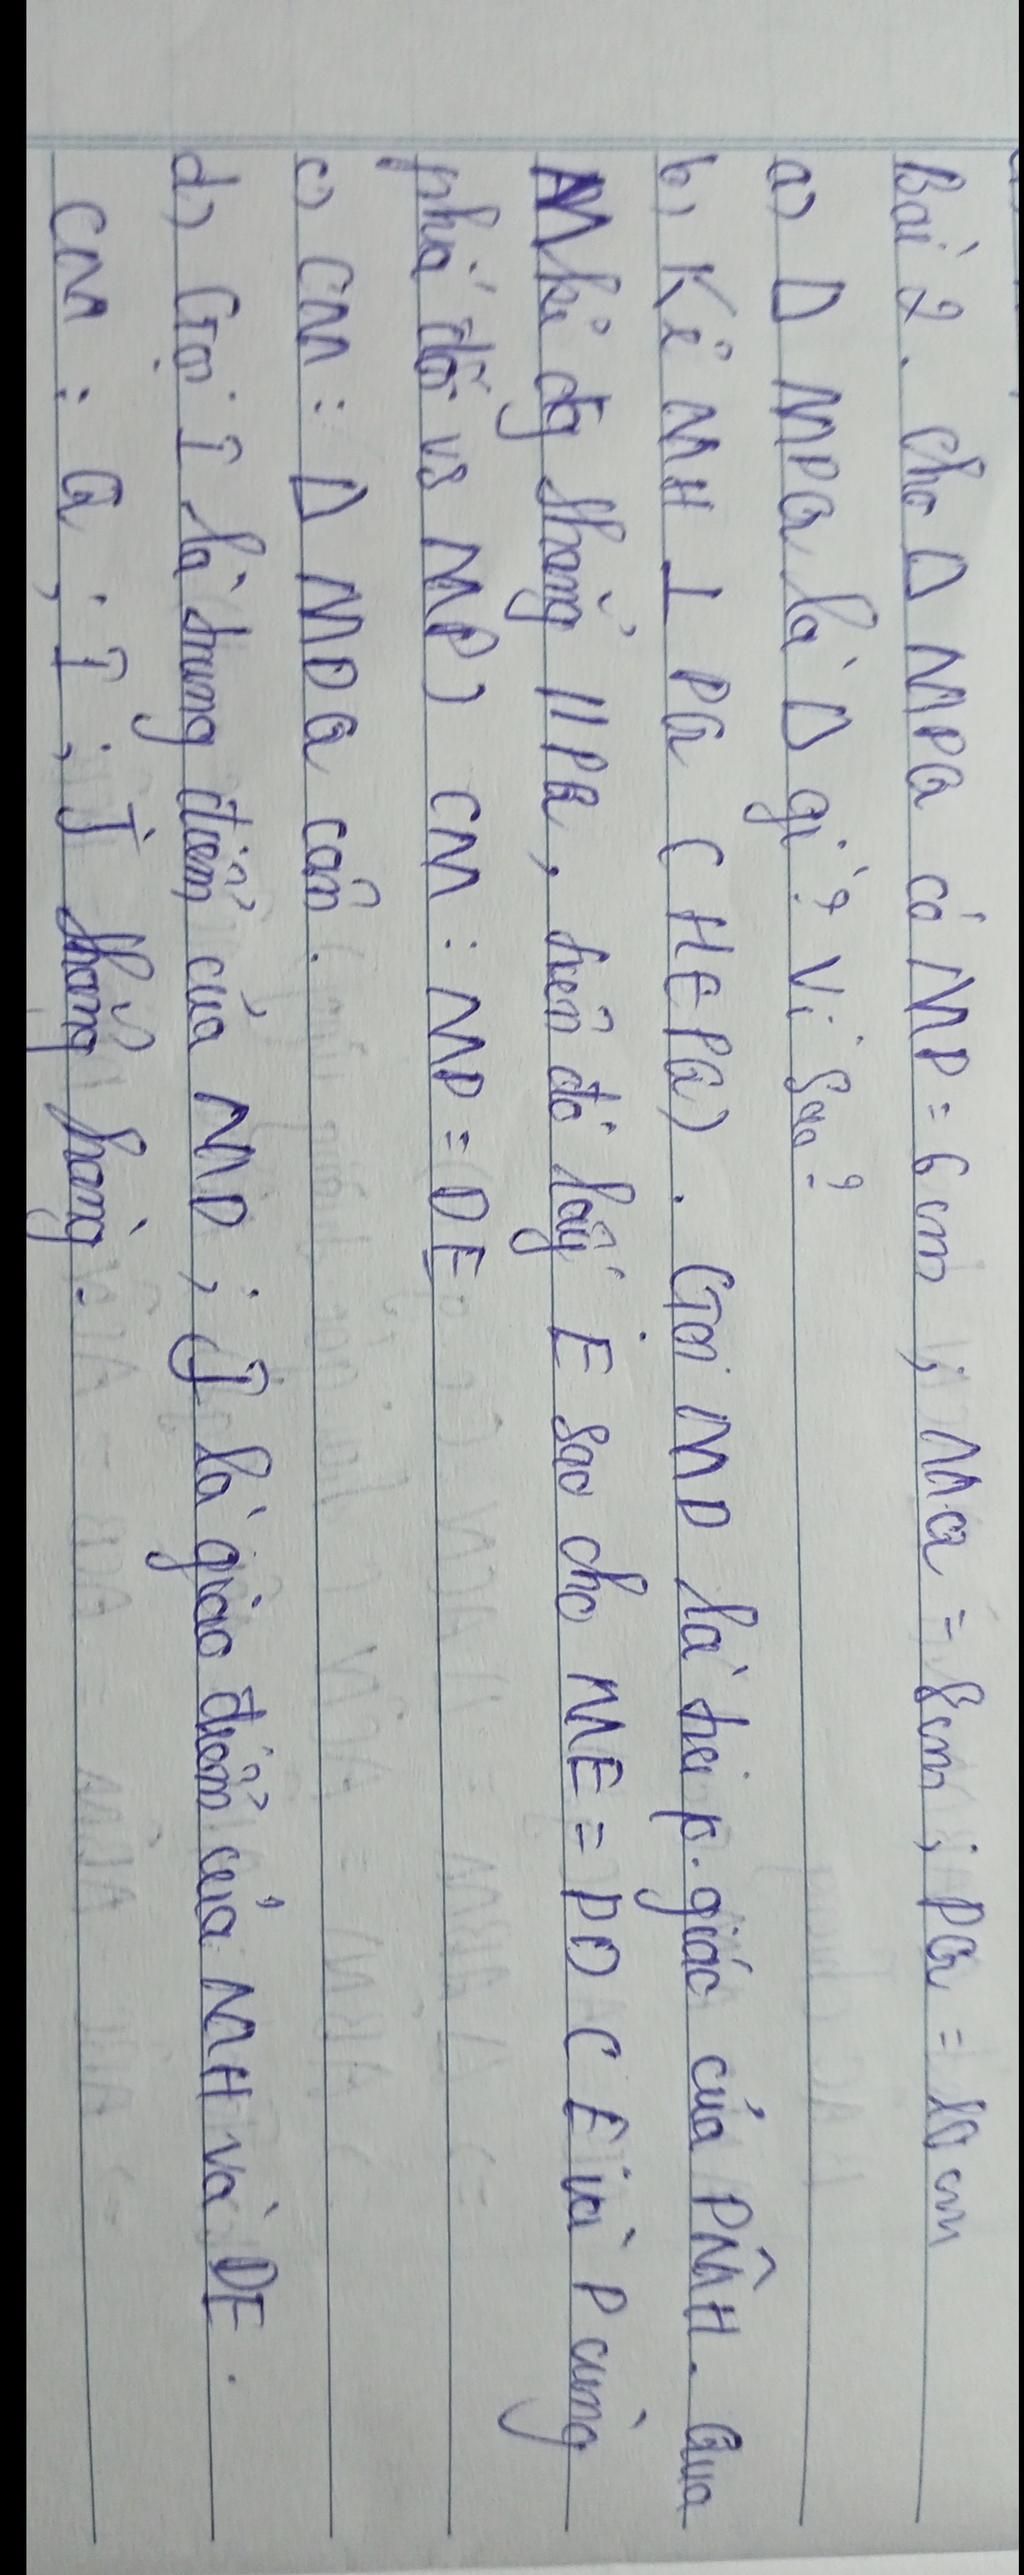 Bài 2. Cho Δ MPQ có MP = 6 cm ; MQ = 8cm ; PQ = 10 cm
a) Δ MPQ là Δ gì ? Vì sao ?
b) Kẻ MH ⊥ PQ ( H ∈ PQ ) . Gọi MD là tia p. giác của PM̂H. Qua
M kẻ đg thẳng // PQ , trên đó lấy E sao cho ME = PD ( E và P cùng
phía đối vs MP ) CM : MP = DE
c) CM : Δ MDQ cân .
d) Gọi I là trung điểm của MD ; J là giao điểm của MH và DE .
CM : Q ; I ; J thẳng hàng .